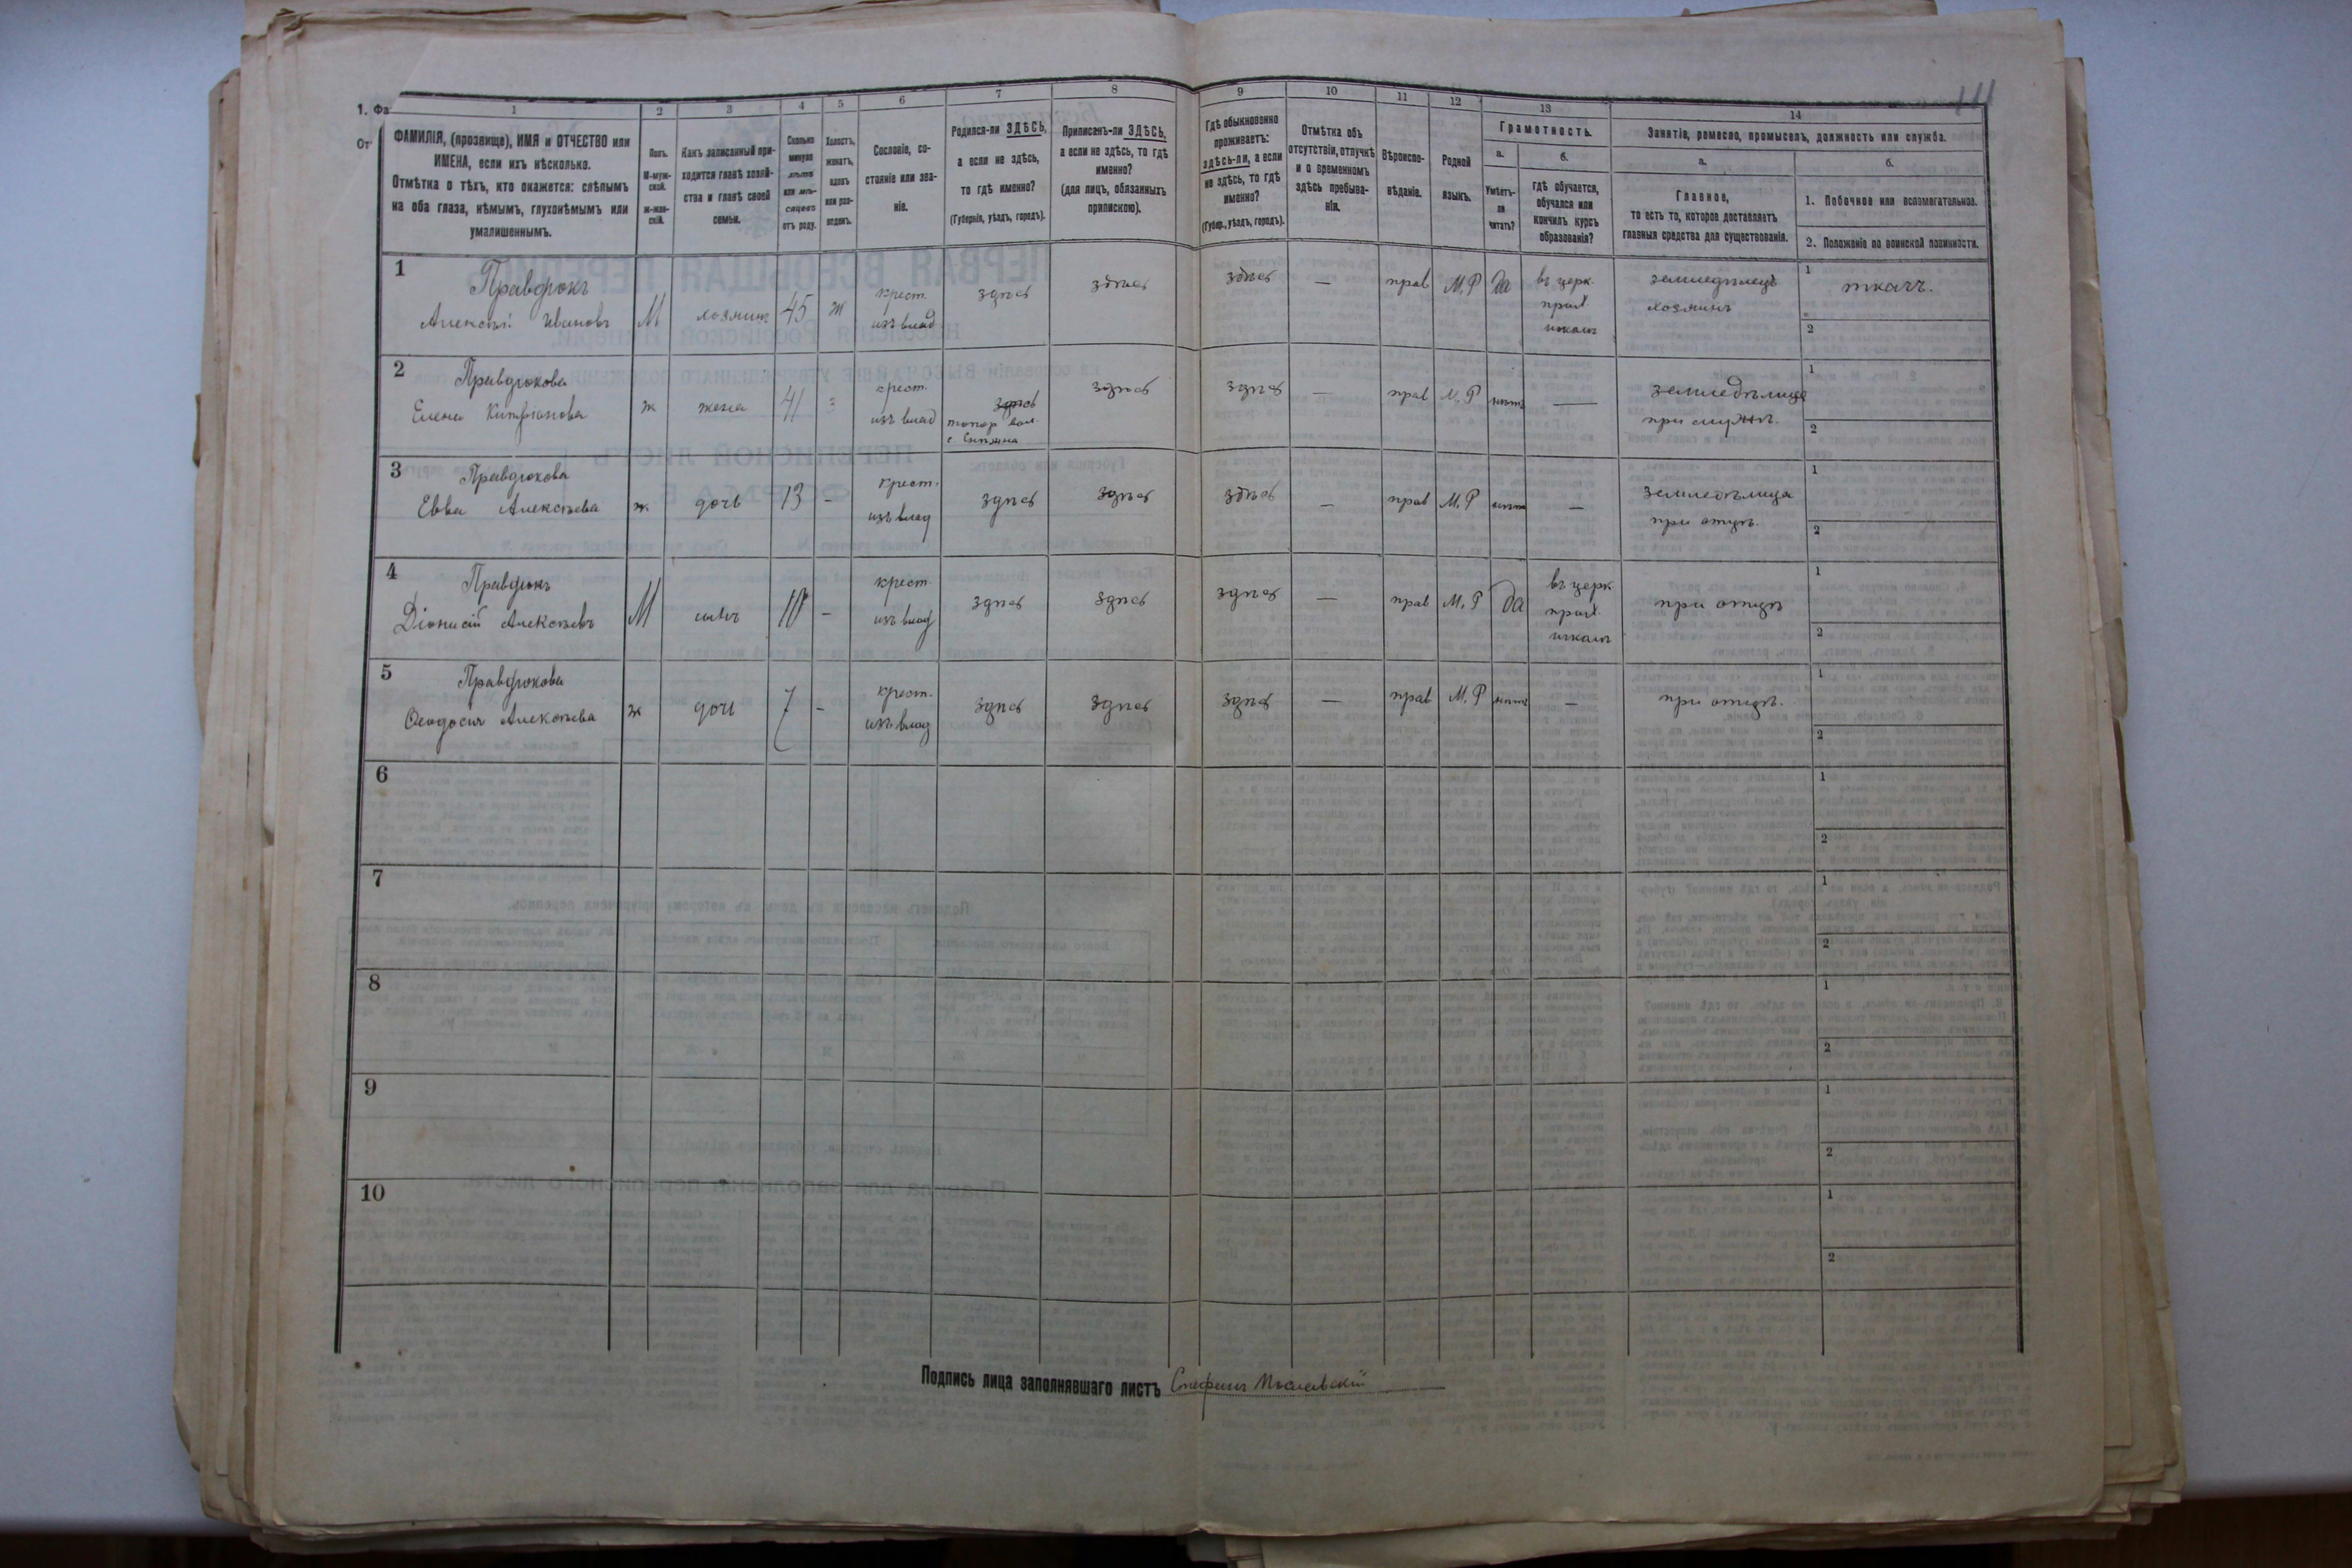 111
1. Фа
От
1
2
3
4
5
6
7
8
9
10
11
12
13
14
ФАМИЛІЯ, (прозвище), ИМЯ и ОТЧЕСТВО или
ИМЕНА, если ихъ нѣсколько.
Отмѣтка о тѣхъ, кто окажется: слѣпымъ
на оба глаза, нѣмымъ, глухонѣмымъ или
умалишеннымъ.
Полъ.
М-муж-
ской.
ж-жен-
скій.
Какъ записанный при-
ходится главѣ хозяй-
ства и главѣ своей
семьи.
Сколько
минуло
лѣтъ
или мѣ-
сяцевъ
отъ роду.
Холостъ,
женатъ,
вдовъ
или раз-
веденъ.
Сословіе, со-
стояніе или зва-
ніе.
Родился-ли ЗДѢСЬ,
а если не здѣсь,
то гдѣ именно?
(Губернія, уѣздъ, городъ).
Приписанъ-ли ЗДѢСЬ,
а если не здѣсь, то гдѣ
именно?
(для лицъ, обязанныхъ
припискою).
Гдѣ обыкновенно
проживаетъ:
здѣсь-ли, а если
не здѣсь, то гдѣ
именно?
(Губер., уѣздъ, городъ).
Отмѣтка объ
отсутствіи, отлучкѣ
и о временномъ
здѣсь пребыва-
ніи.
Вѣроиспо-
вѣданіе.
Родной
языкъ.
Грамотность.
а.
Умѣетъ-
ли
читать?
б.
гдѣ обучается,
обучался или
кончилъ курсъ
образованія?
Занятіе, ремесло, промыселъ, должность или служба.
а.
Главное,
то есть то, которое доставляетъ
главныя средства для существованія.
б.
1. Побочное или вспомогательное.
2. Положеніе по воинской повинности.
1
Правдюкъ
Алексѣй Ивановъ
М
хозяинъ
45
ж
крест.
изъ влад.
здѣсь
здѣсь
здѣсь
—
прав
М.Р
да
въ церк.
прих.
школѣ
земледѣлецъ
хозяинъ
1
ткачъ.
2
2
Правдюкова
Елена
ж
жена
41
з
крест.
изъ влад
здѣсь
вол.
с.
здѣсь
здѣсь
—
прав
М.Р
нѣтъ
—
земледѣлица
при мужѣ.
1
2
3
Правдюкова
Евва Алексѣева
ж.
дочь
13
-
крест.
изъ влад
здѣсь
здѣсь
здѣсь
—
прав
М.Р
нѣтъ
—
земледѣлица
при отцѣ.
1
2
4
Правдюкъ
Діонисій Алексѣевъ
М
сынъ
10
-
крест.
изъ влад
здѣсь
здѣсь
здѣсь
—
прав
М.Р
да
въ церк.
прих.
школѣ
при отцѣ
1
2
5
Правдюкова
Ѳеодосія Алексѣева
ж
дочь
7
-
крест.
изъ влад
здѣсь
здѣсь
здѣсь
—
прав
М.Р
нѣтъ
—
при отцѣ.
1
2
6
1
2
7
1
2
8
1
2
9
1
2
10
1
2
Подпись лица заполнявшаго листъ Стефанъ